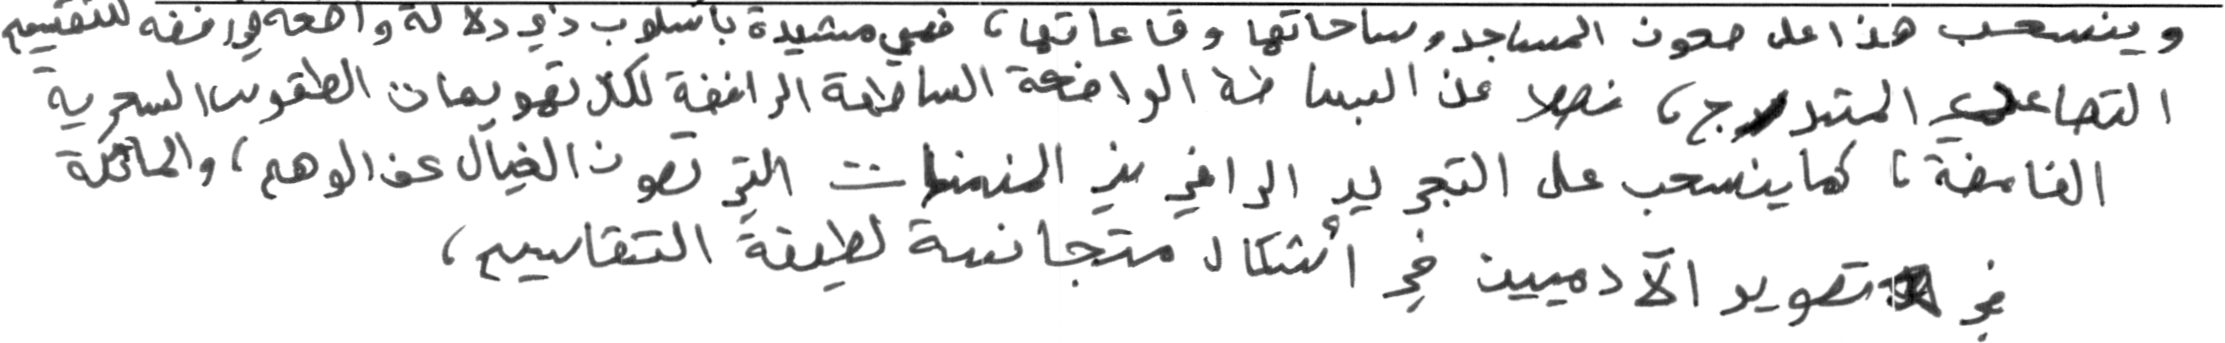 وينسحب هذا على صحون المساجد وساحاتها وقاعاتها، فهي مشيدة بأسلوب ذي دلالة واضحة في رفضه للتقسيم
التصاعدي المتدرج، فضلا عن البساطة الواضحة الساطعة الرافضة لكل تهويمات الطقوس السحرية
الغامضة، كما ينسحب على التجريد الراقي في المنمنمات التي تصون الخيال عن الوهم، والماثلة
في تصوير الآدميين في أشكال متجانسة لطيفة التقاسيم،